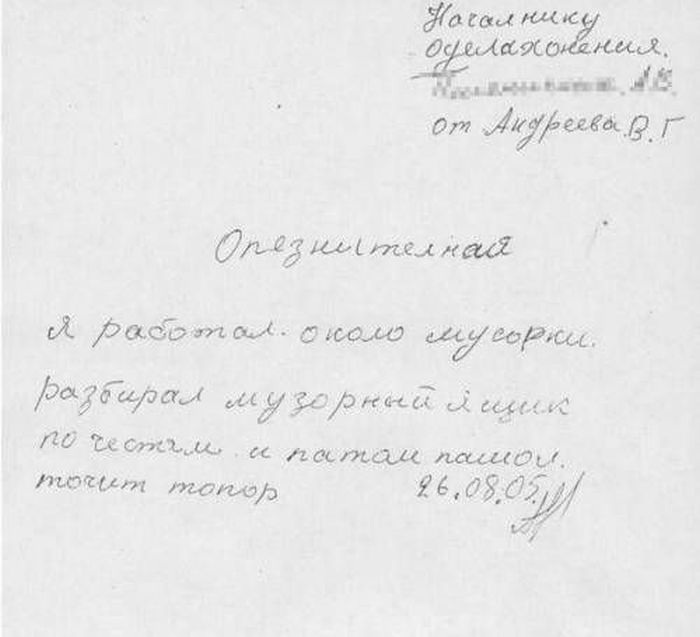 Началнику
оделахонения.
от Андреева В.Г
Опезнителная
я работал. около мусорки.
разбирал музорный ящик
по честям и патом пашол.
точит топор 26.08.05.